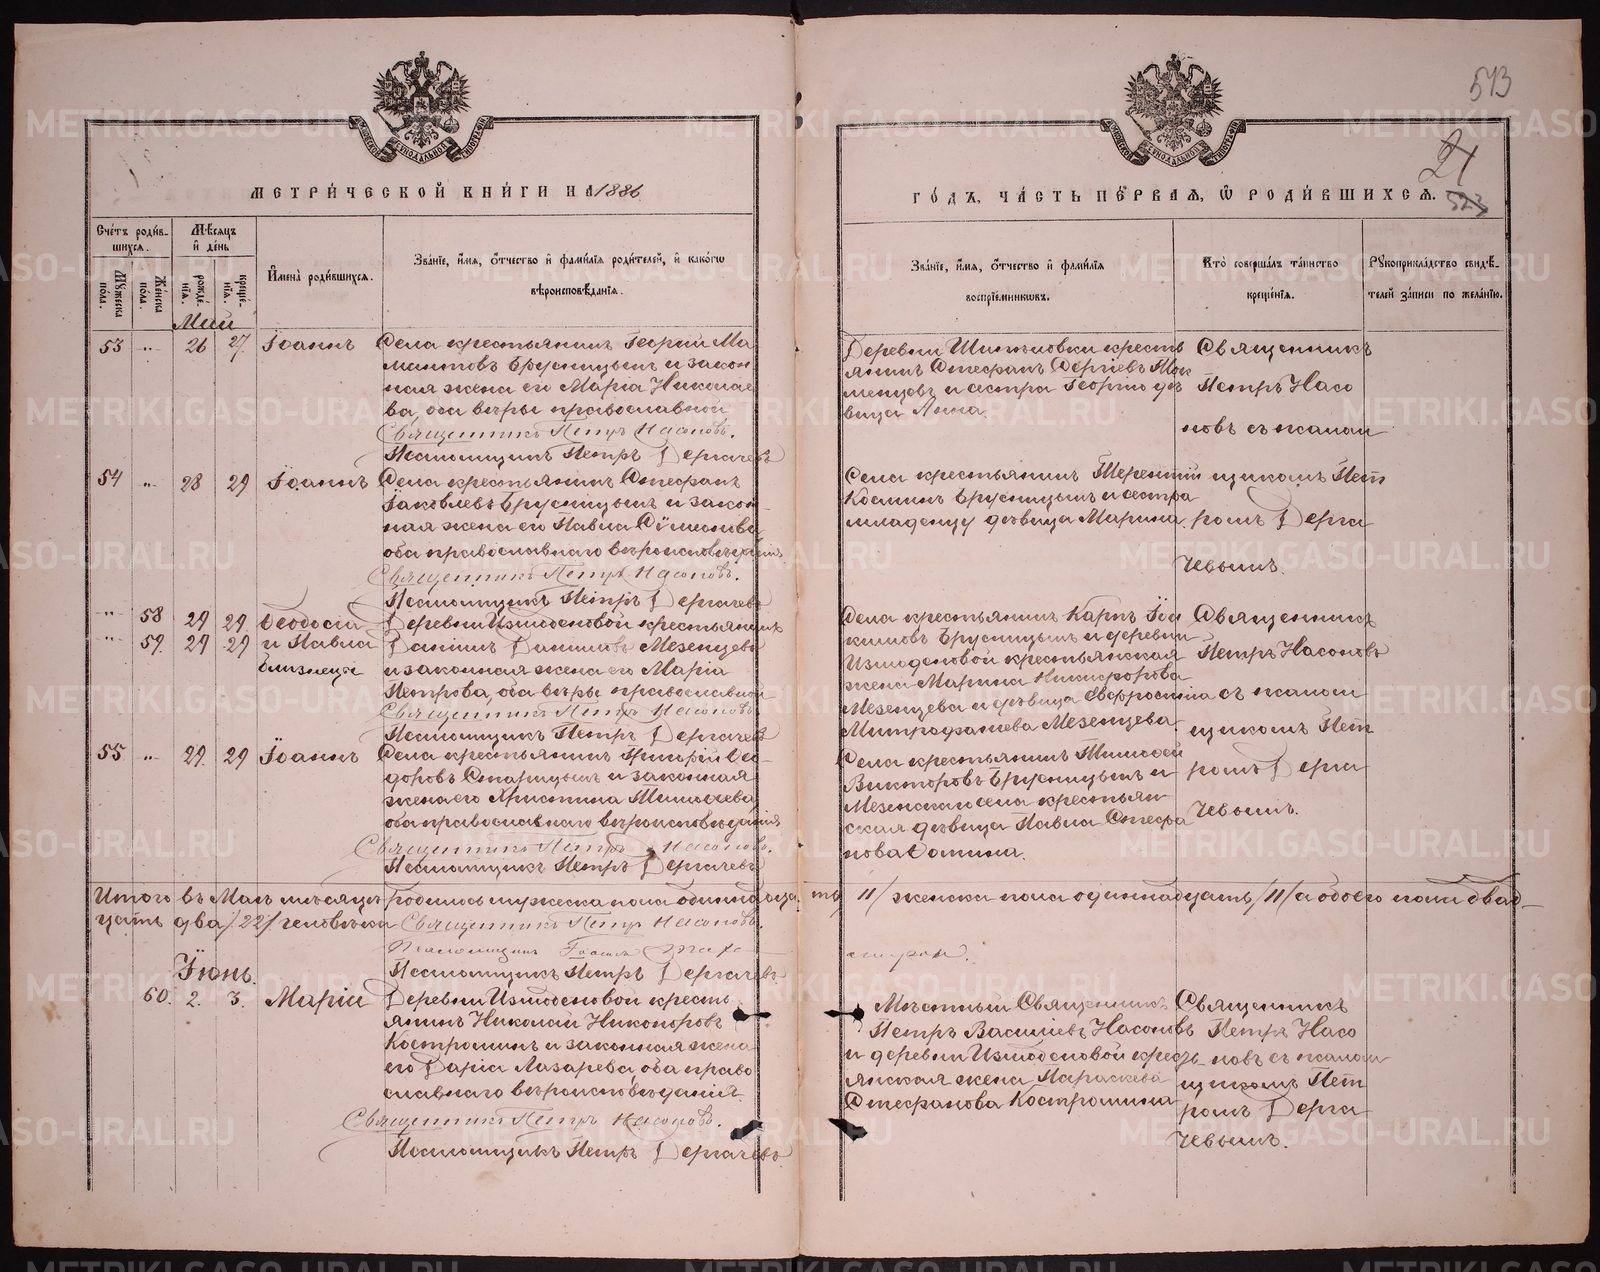 543
21
523
МЕТРИ́ЧЕСКОЙ КНИ́ГИ НА 1886
ГО́ДЪ, ЧА́СТЬ ПЕ́РВАЯ, Ѿ РОДИ́ВШИХСЯ.
Сче́тъ роди́в-
шихся.
Мѣсяцъ
и҆ де́нь
Мꙋжеска по́ла.
Же́нска по́ла.
рожде́нїя.
креще́нїя.
И҆мена̀ роди́вшихся.
Зва́нїе, и҆́мя, ѻ҆́тчество и҆ фами́лїя роди́телей, и҆ како́гѡ
вѣроисповѣ́данїя.
Зва́нїе, и҆́мя, ѻ҆́тчество и҆ фами́лїя
воспрїе́мникѡвъ.
Кто̀ соверша́лъ та́инство
креще́нїя.
Рꙋкоприкла́дство свидѣ́-
телей за́писи по жела́нїю.
Май
53 " 26 27 Іоаннъ
Села крестьянинъ Георгій Ма
мантовъ Брусницынъ и закон
ная жена его Марія Николае
ва, оба вѣры православной
Священникъ Петръ Насоновъ.
Псаломщикъ Петръ Дергачевъ
Деревни крестья
янинъ Стефанъ Сергіевъ
менцовъ и сестра Георгію дѣ
вица Анна.
Священникъ
Петръ Насо
новъ съ псалом
54 " 28 29 Іоаннъ
Села крестьянинъ Стефанъ
Іаковлевъ Брусницынъ и закон
ная жена его Павла Сѵмеонова
оба православнаго вѣроисповѣданія
Священникъ Петръ Насоновъ.
Псаломщикъ Петръ Дергачевъ
Села крестьянинъ Терентій
Косминъ Брусницынъ и сестра
младенцу дѣвица Марина.
щикомъ Пет
ромъ Дерга
чевымъ.
" 58 29 29 Ѳеодосія
" 59. 29 29 и Павла
близнецы
Деревни Измоденовой крестьянинъ
Даніилъ Даниловъ Мезенцевъ
и законная жена его Марія
Петрова, оба вѣры православной
Священникъ Петръ Насоновъ
Псаломщикъ Петръ Дергачевъ
Села крестьянинъ Карпъ Іоа
кимовъ Брусницынъ и деревни
Измоденовой крестьянская
жена Марина Никифорова
Мезенцева и дѣвица
Митрофанова Мезенцева
Священникъ
Петръ Насоновъ
съ псалом
щикомъ Пет
ромъ Дерга
чевымъ.
55 " 29. 29 Іоаннъ
Села крестьянинъ Григорій Ѳео-
доровъ Старицынъ и законная
жена его Христина Тимоѳеева,
оба православнаго вѣроисповѣданія
Священникъ Петръ Насоновъ.
Псаломщикъ Петръ Дергачевъ
Села крестьянинъ Тимоѳей
Викторовъ Брусницынъ и
Мезенскаго села крестьян
ская дѣвица Павла Стефа
нова Ѳомина.
Итого въ Маѣ мѣсяцѣ родилось мужеска пола одиннадцать /11/ женска пола одиннадцать /11/ а обоего пола двад-
цать два /22/ человѣка Священникъ Петръ Насоновъ.
Псаломщикъ Петръ Дергачевъ
Іюнь.
60. 2. 3. Марія
Деревни Измоденовой кресть
янинъ Николай Никоноровъ
Костроминъ и законная жена
его Дарія Лазарева, оба право
славнаго вѣроисповѣданія.
Священникъ Петръ Насоновъ.
Псаломщикъ Петръ Дергачевъ
Мѣстный Священникъ
Петръ Василіевъ Насоновъ
и деревни Измоденовой кресть
янская жена Параскева
Стефанова Костромина
Священникъ
Петръ Насо
новъ съ псалом
щикомъ Пет
ромъ Дерга
чевымъ.
METRIKI.GASO-URAL.RU